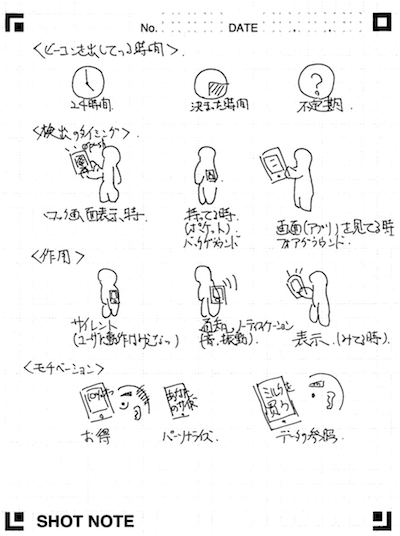 No. DATE
<ビーコンを出してる時間>
24時間 決まった時間 不定期
<検出のタイミング>
ロック画面表示時 持ってる時 画面(アプリ)を見てる時
(ポケット) フォアグラウンド
バックグラウンド
<作用>
サイレント 通知 ノーティフィケーション 表示
(ユーザに動作はみえない) (音、振動) (みてる時)
<モチベーション>
あなた ミルクを
の 買う
お得 パーソナライズ データの参照
SHOT NOTE